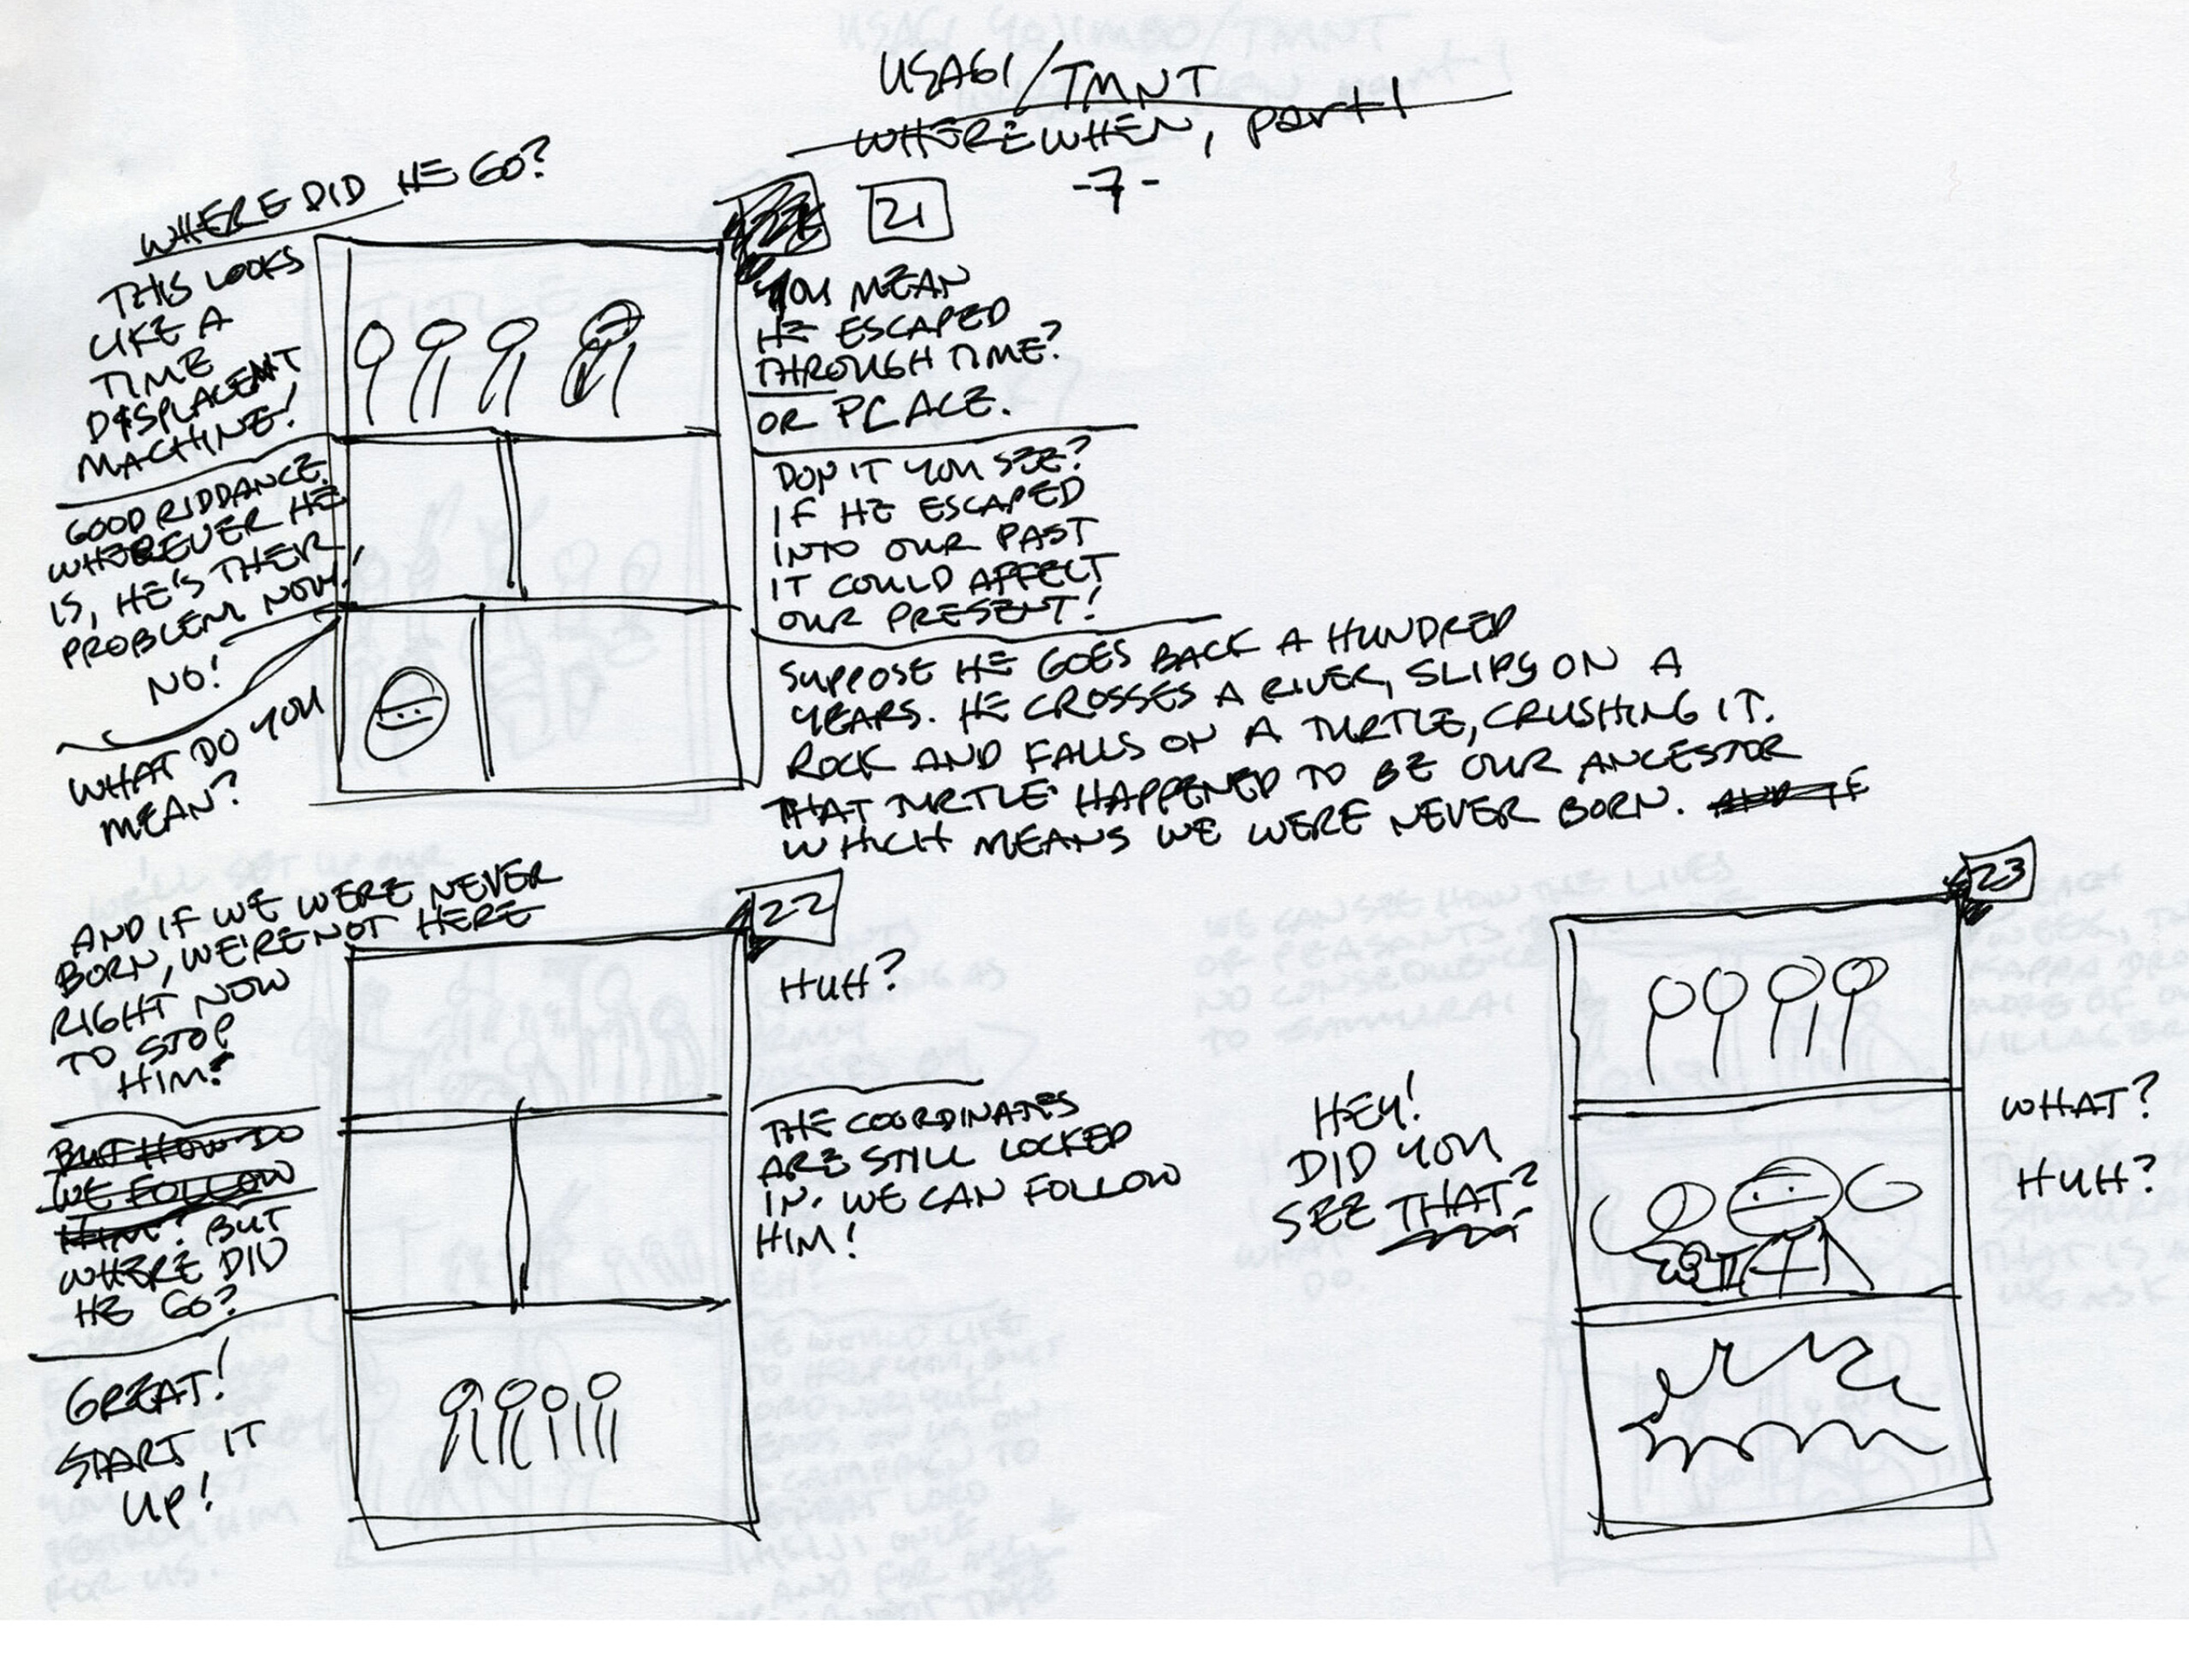 USAGI/TMNT
WHEREWHEN, part 1
-7-
21
WHERE DID HE GO?
THIS LOOKS
LIKE A
TIME
DISPLACEMNT
MACHINE!
YOU MEAN
HE ESCAPED
THROUGH TIME?
OR PLACE.
GOOD RIDDANCE.
WHEREVER HE
IS, HE'S THEIR
PROBLEM NOW!
NO!
DON'T YOU SEE?
IF HE ESCAPED
INTO OUR PAST
IT COULD AFFECT
OUR PRESENT!
WHAT DO YOU
MEAN?
SUPPOSE HE GOES BACK A HUNDRED
YEARS. HE CROSSES A RIVER, SLIPS ON A
ROCK AND FALLS ON A TURTLE, CRUSHING IT.
THAT TURTLE HAPPENED TO BE OUR ANCESTOR
WHICH MEANS WE WERE NEVER BORN. AND IF
22
AND IF WE WERE NEVER
BORN, WE'RE NOT HERE
RIGHT NOW
TO STOP
HIM?
HUH?
BUT HOW DO
WE FOLLOW
HIM? BUT
WHERE DID
HE GO?
THE COORDINATES
ARE STILL LOCKED
IN. WE CAN FOLLOW
HIM!
GREAT!
START IT
UP!
23
HEY!
DID YOU
SEE THAT?
WHAT?
HUH?